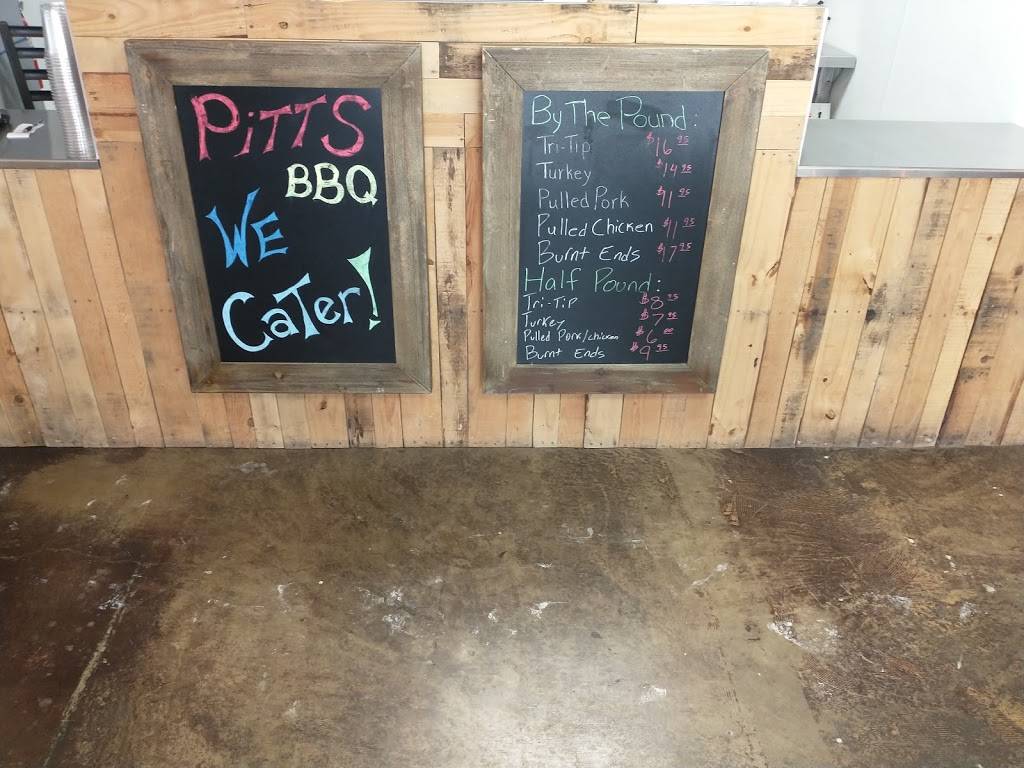 PiTTS
BBQ
WE
CaTer!
By The Pound:
Tri-Tip $16 95
Turkey $14 95
Pulled Pork $11 95
Pulled Chicken $11 95
Burnt Ends $17 95
Half Pound:
Tri-Tip $8 95
Turkey $7 95
Pulled Pork/chicken $6 00
Burnt Ends $9 95